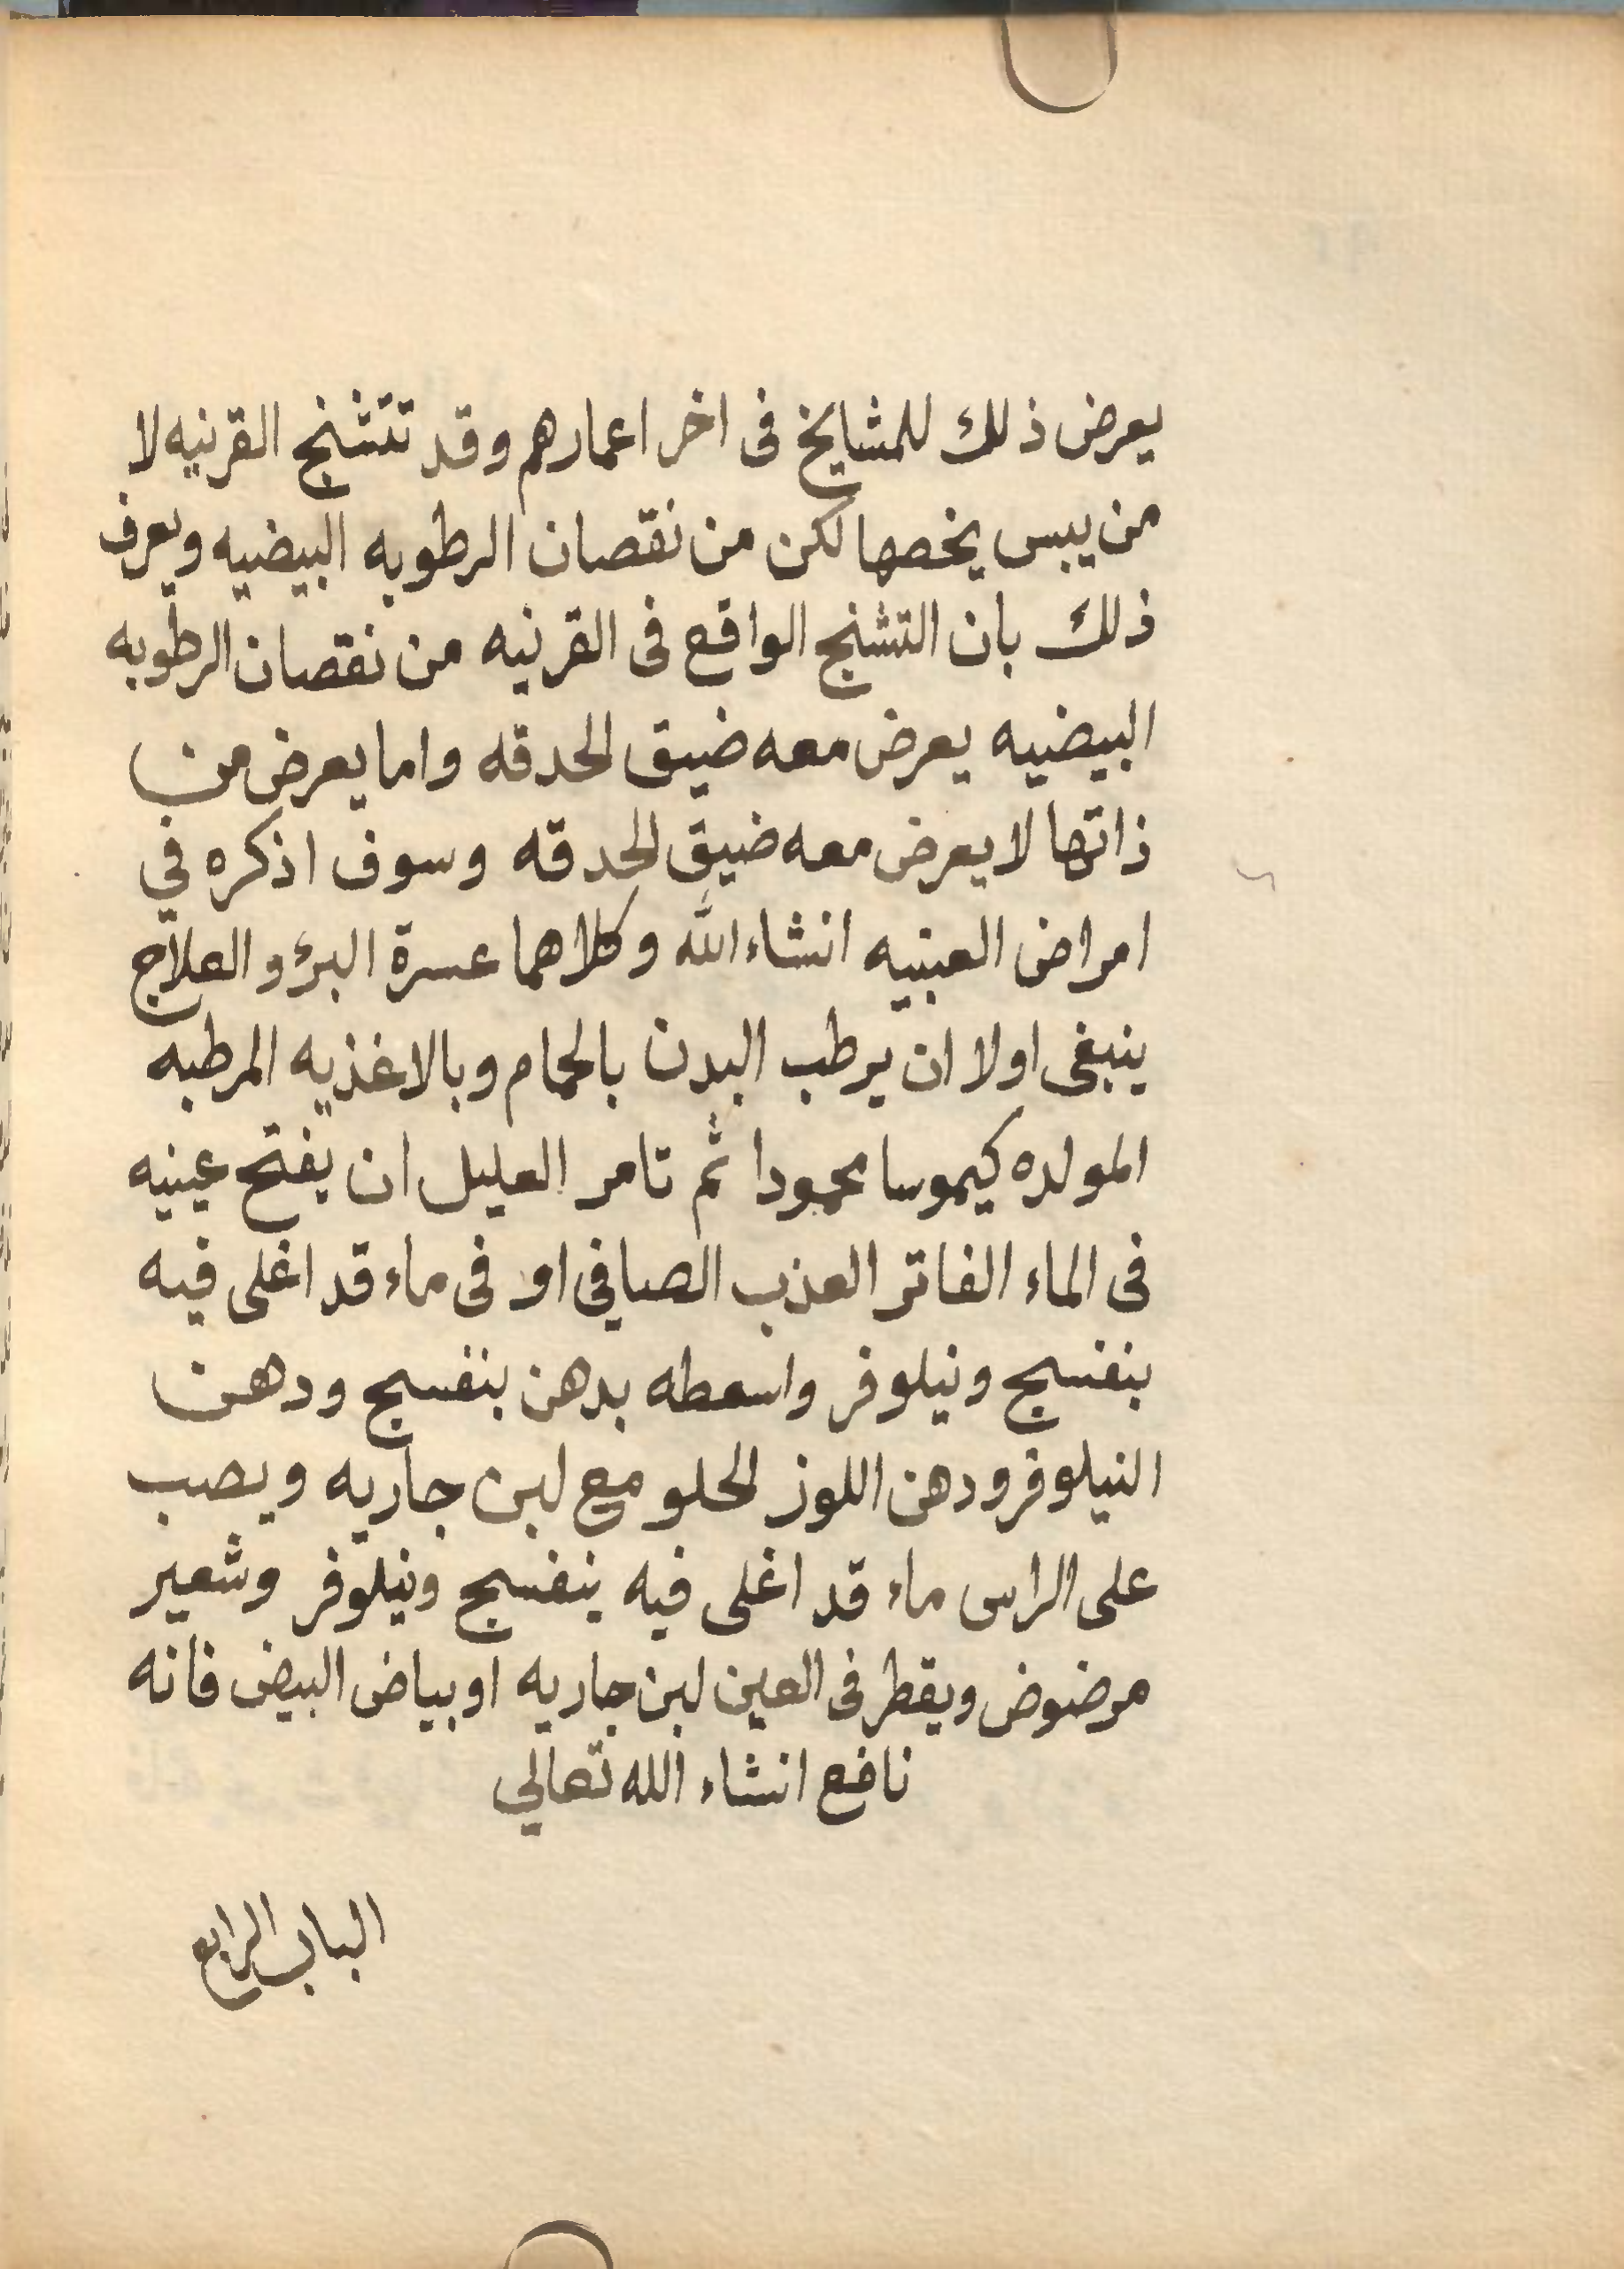 يعرض ذلك للمشايخ فى اخر اعمارهم وقد تتشنج القرنيه لا
من يبس يخصها لكن من نقصان الرطوبه البيضيه ويعرف
ذلك بان التشنج الواقع فى القرنيه من نقصان الرطوبه
البيضيه يعرض معه ضيق الحدقه واما يعرض من
ذاتها لا يعرض معه ضيق الحدقه وسوف اذكره في
امراض العنبيه انشاء الله وكلاهما عسرة البرؤ والعلاج
ينبغى اولا ان يرطب البدن بالحمام وبالاغذيه المرطبه
المولده كيموسا محمودا ثم تامر العليل ان يفتح عينيه
فى الماء الفاتر العذب الصافي او فى ماء قد اغلى فيه
بنفسج ونيلوفر واسعطه بدهن بنفسج ودهن
النيلوفر ودهن اللوز الحلو مع لبن جاريه ويصب
على الراس ماء قد اغلى فيه بنفسج ونيلوفر وشعير
مرضوض ويقطر فى العين لبن جاريه او بياض البيض فانه
نافع انشاء الله تعالي
الباب الرابع